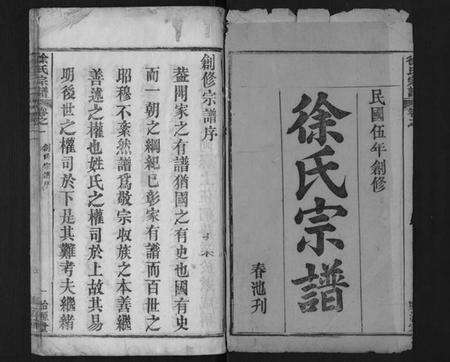 民國伍年創修
徐氏宗譜
春池刊
徐氏宗譜
創修宗譜序
蓋聞家之有譜猶國之有史也國有史
而一朝之綱紀已彰家有譜而百世之
昭穆不紊然譜為敬宗收族之本善繼
善述之權也姓氏之權司於上故其易
明後世之權司於下是其難考夫繼緒
徐氏宗譜
卷之
創修宗譜序